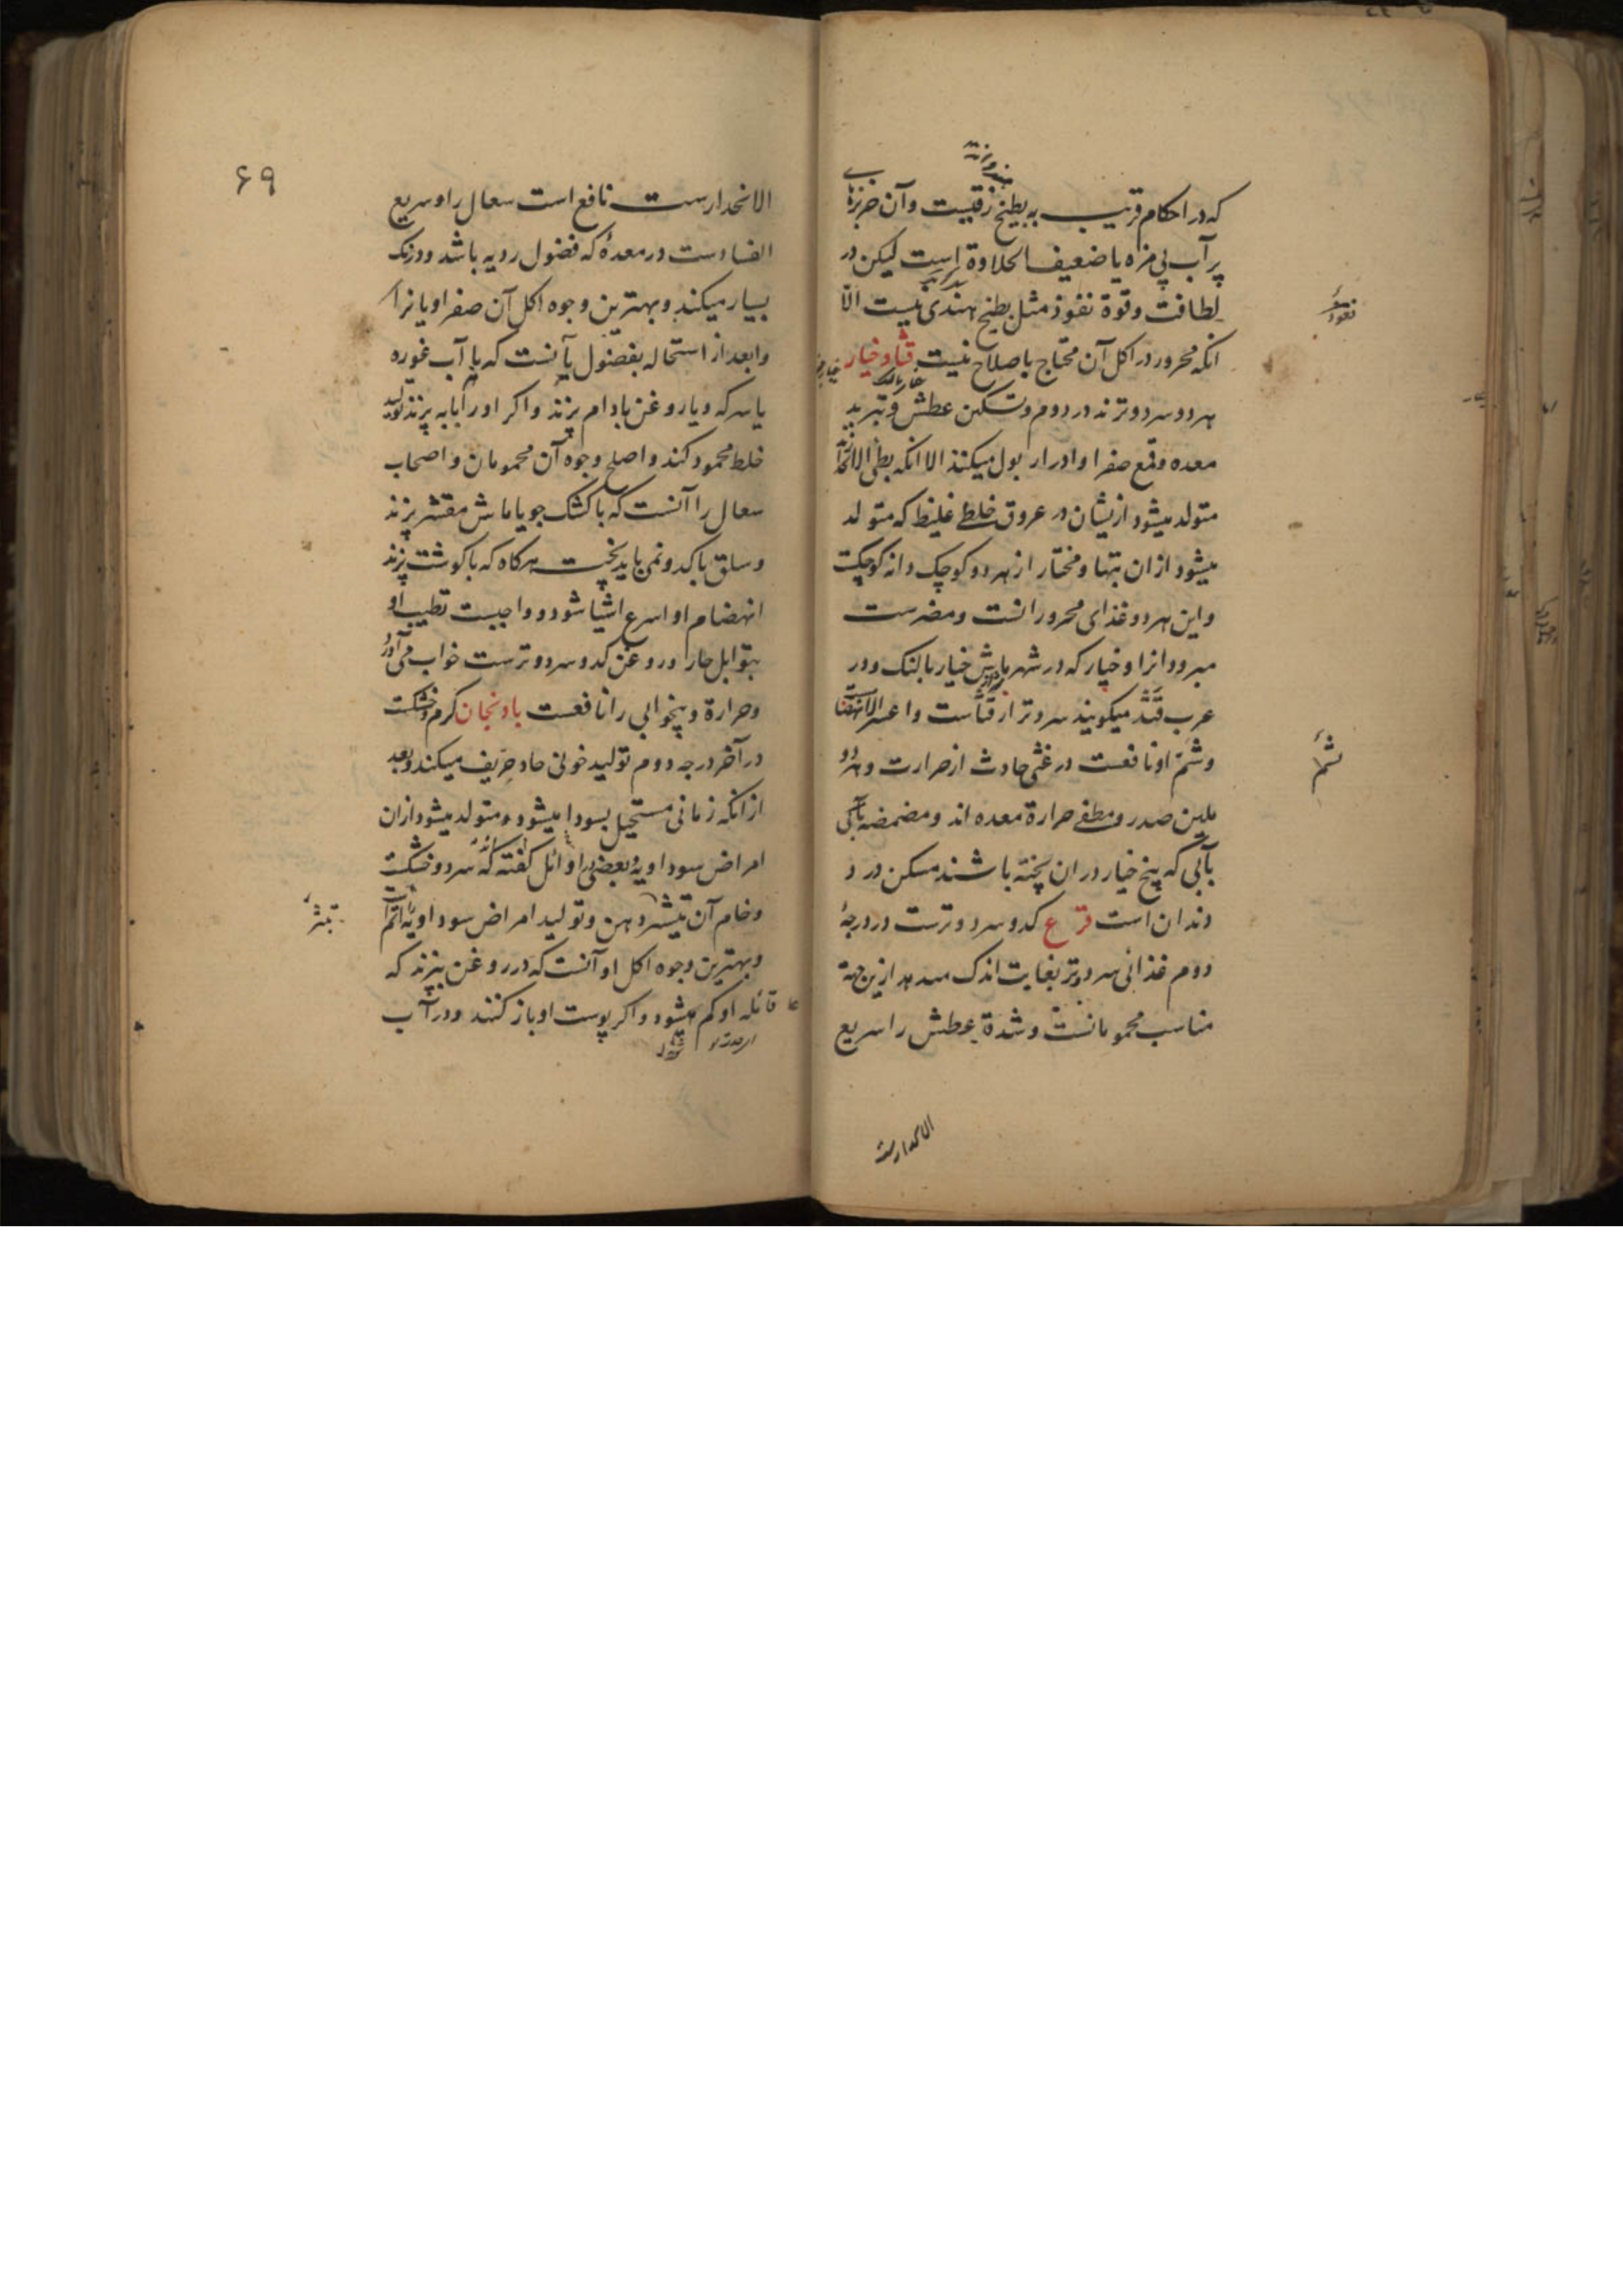 که در احکام قریب به بطیخ زقیست و آن خربزهٔ
پر آب بی مزه یا ضعیف الحلاوة است لیکن در
لطافت و قوة نفوذ مثل بطیخ هندی نیست الّا
انکه محرور در اکل آن محتاج باصلاح نیست قثا و خیار
هر دو سرد و ترند در دوم و تسکین عطش و تبرید
معده و قمع صفرا و ادرار بول میکنند الا انکه بطی الانحد
متولد میشود ازیشان در عروق خلطی غلیظ که متولد
میشود ازان تبها و مختار از هر دو کوچک دانه کوچکست
و این هر دو غذای محرورانست و مضرست
مبرودانرا و خیار که در شهر ما خیار بالنک و در
عرب قثد میکویند سردتر از قثاست و اعسر الانهضا
و شم او نافعست در غشی حادث از حرارت و هر دو
ملین صدر و مطفی حرارة معده اند و مضمضه
بآبی که بیخ خیار دران پخته باشند مسکن درد
دندان است قرع کدو سرد و ترست در درجهٔ
دوم غذائی سرد و تر بغایت اندک میدهد ازین جهة
مناسب محمومانست و شدة عطش را سریع
الانحدارست
نفوذ
شم
۶۹
الانحدارست نافع است سعال را و سریع
الفسادست در معدهٔ که فضول ردیه باشد و درنک
بسیار میکند و بهترین وجوه اکل آن صفراویانرا
و ابعد از استحاله بفضول آنست که با آب غوره
یا سرکه و یا روغن بادام پزند و اکر او را بابه پزند تولید
خلط محمود کند و اصلح وجوه آن محمومان و اصحاب
سعال را آنست که با کشک جو یا ماش مقشر پزند
و سلق با کدو نمی باید پخت هرکاه که با کوشت پزند
انهضام او اسرع اشیا شود و واجبست تطییب او
بتوابل حار و روغن کدو سرد و ترست خواب می آورد
و حرارة و بیخوابی را نافعست بادنجان کرم و خشکست
در آخر درجه دوم تولید خونی حاد حریف میکند و بعد
ازانکه زمانی مستحیل بسودا میشود و متولد میشود ازان
امراض سوداویه و بعضی اوائل کفته که سرد و خشکست
و خام آن تبثر دهن و تولید امراض سوداویه اتم
و بهترین وجوه اکل او آنست که در روغن بپزند که
غائله او کم میشود و اکر پوست او باز کنند و در آب
تبثر